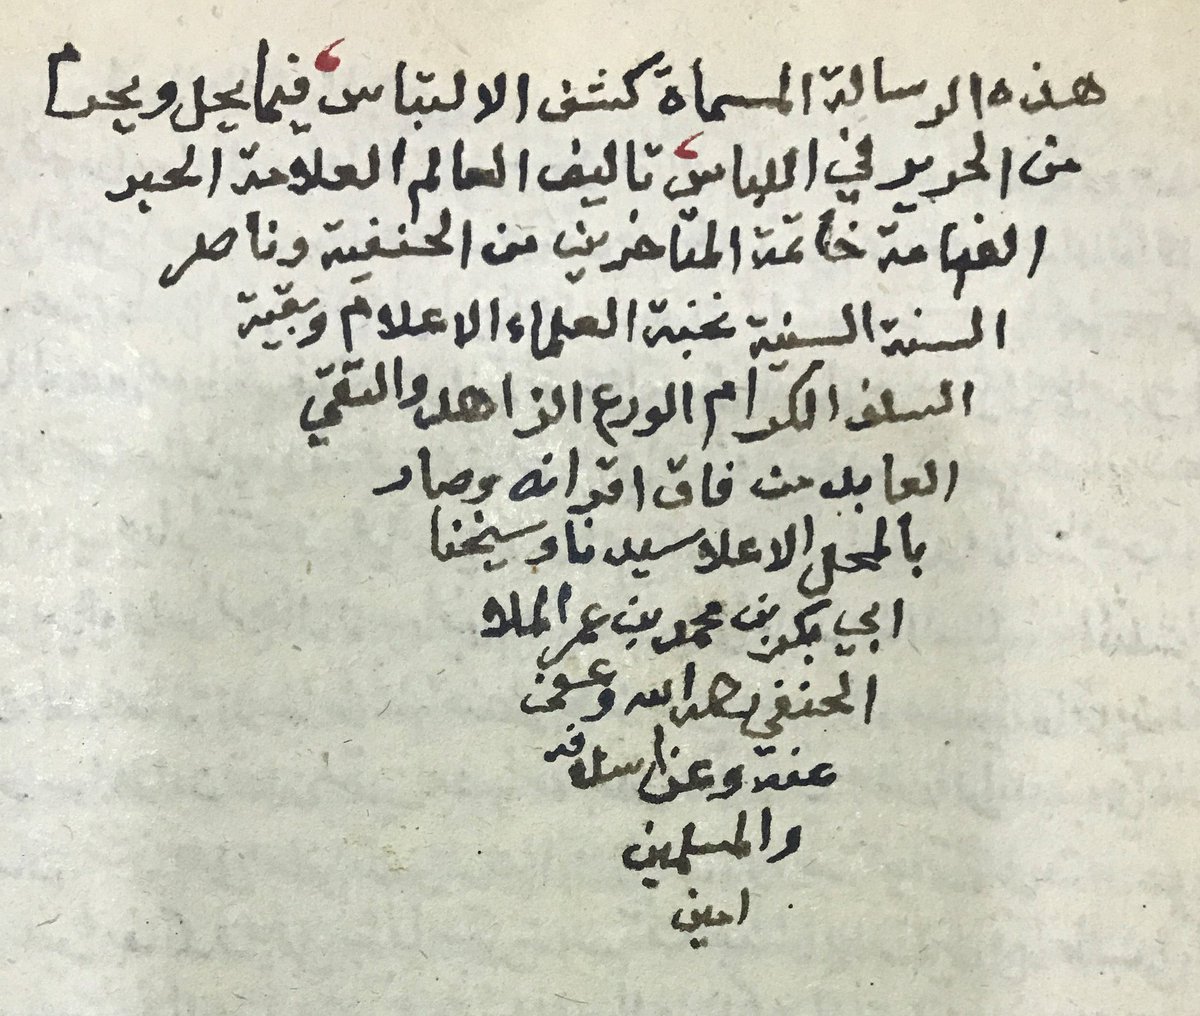 هذه الرسالة المسماة كشف الالتباس فيما يحل ويحرم
من الحرير في اللباس تاليف العالم العلامة الحبر
الفهامة خاتمة المتاخرين من الحنفية وناصر
السنة السنية نخبة العلماء الاعلام وبقية
السلف الكرام الورع الزاهد والتقي
العابد من فاق اقرانه وصار
بالمحل الاعلا سيدنا وشيخنا
ابي بكر بن محمد بن عمر الملا
الحنفي رحمه الله وعفى
عنه وعن اسلافه
والمسلمين
امين